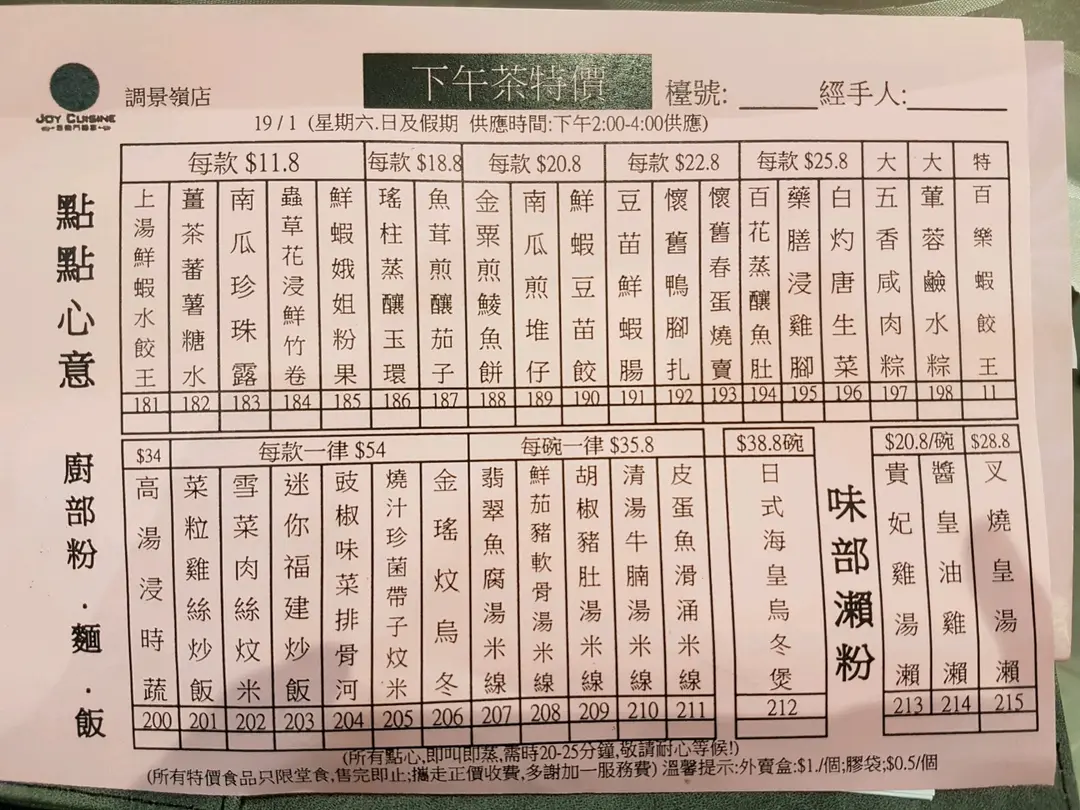 JOY CUISINE
調景嶺店
下午茶特價
檯號: ______ 經手人:______
19/1 (星期六.日及假期 供應時間:下午2:00-4:00供應)
點點心意
每款 $11.8
每款 $18.8
每款 $20.8
每款 $22.8
每款 $25.8
大
大
特
上湯鮮蝦水餃王
薑茶蕃薯糖水
南瓜珍珠露
蟲草花浸鮮竹卷
鮮蝦娥姐粉果
瑤柱蒸釀玉環
魚茸煎釀茄子
金粟煎鯪魚餅
南瓜煎堆仔
鮮蝦豆苗餃
豆苗鮮蝦腸
懷舊鴨腳扎
懷舊春蛋燒賣
百花蒸釀魚肚
藥膳浸雞腳
白灼唐生菜
五香咸肉粽
蕈蓉鹼水粽
百樂蝦餃王
181 182 183 184 185 186 187 188 189 190 191 192 193 194 195 196 197 198 11
廚部粉.麵.飯
$34
每款一律 $54
每碗一律 $35.8
$38.8碗
$20.8/碗
$28.8
高湯浸時蔬
菜粒雞絲炒飯
雪菜肉絲炆米
迷你福建炒飯
豉椒味菜排骨河
燒汁珍菌帶子炆米
金瑤炆烏冬
翡翠魚腐湯米線
鮮茄豬軟骨湯米線
胡椒豬肚湯米線
清湯牛腩湯米線
皮蛋魚滑涌米線
日式海皇烏冬煲
味部瀨粉
貴妃雞湯瀨
醬皇油雞瀨
叉燒皇湯瀨
200 201 202 203 204 205 206 207 208 209 210 211 212 213 214 215
(所有點心,即叫即蒸,需時20-25分鐘,敬請耐心等候!)
(所有特價食品只限堂食,售完即止;攜走正價收費,多謝加一服務費) 溫馨提示:外賣盒:$1./個;膠袋;$0.5/個